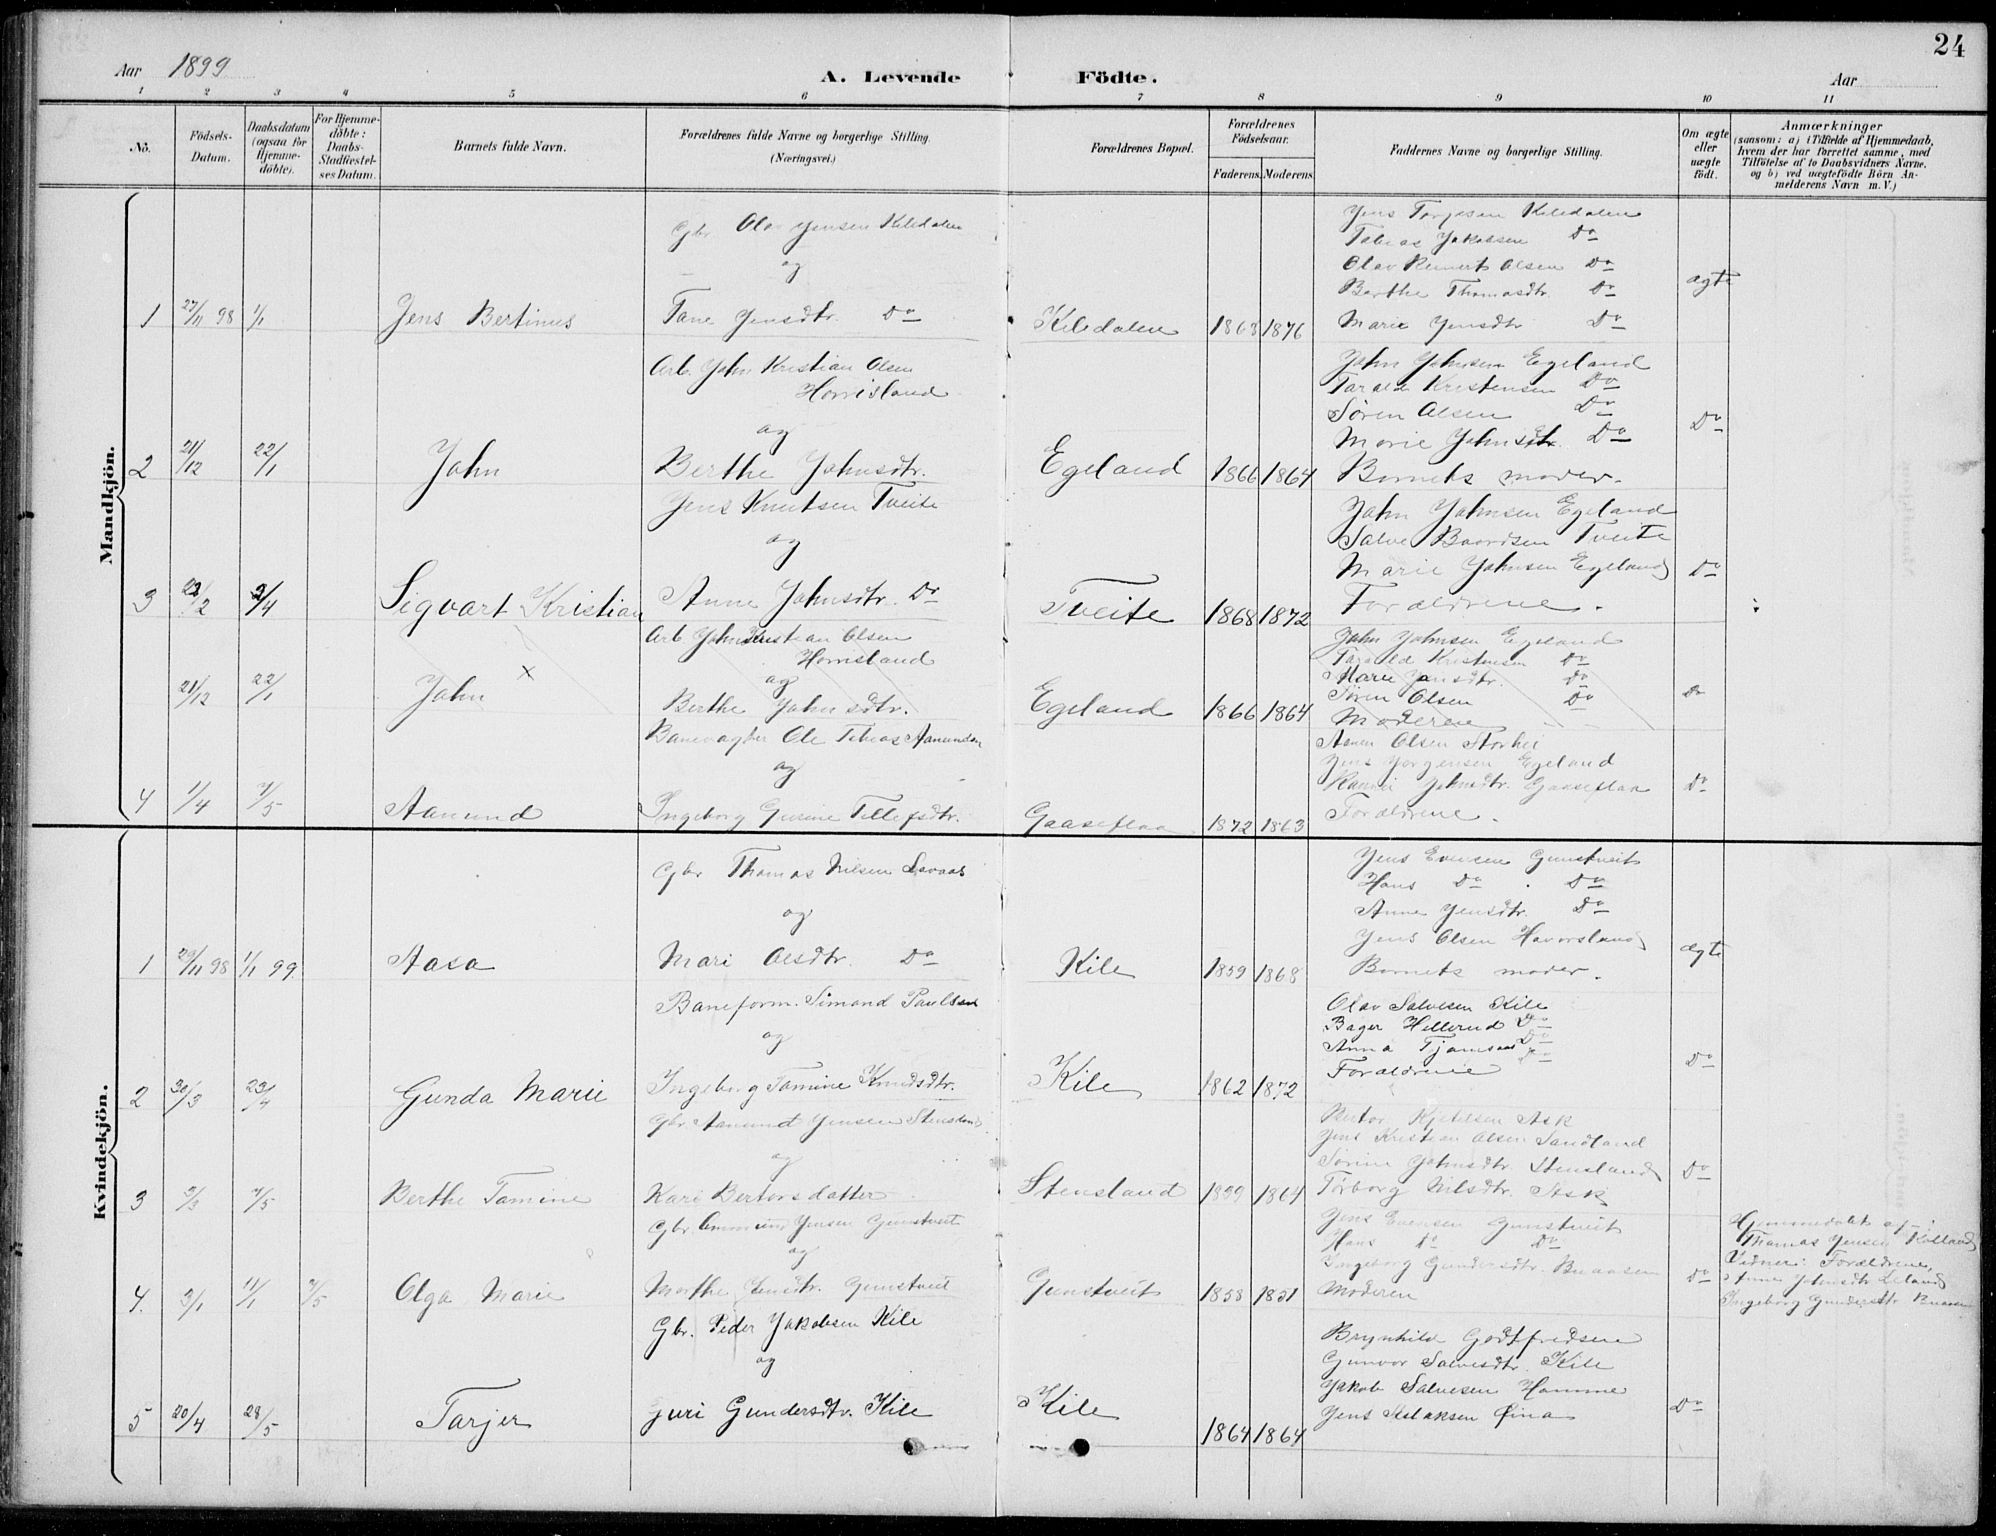 24
Aar 1899 A. Levende Födte. Aar
1 2 3 4 5 6 7 8 9 10 11
No. Födsels-Datum. Daabsdatum (ogsaa for Hjemme-döbte). For Hjemme-döbte: Daabs-Stadfæstel-ses Datum. Barnets fulde Navn. Forældrenes fulde Navne og borgerlige Stilling. (Næringsvei.) Forældrenes Bopæl. Forældrenes Födselsaar. Faderens. Moderens. Faddernes Navne og borgerlige Stilling. Om ægte eller uægte födt. Anmærkninger (saasom: a) i Tilfælde af Hjemmedaab, hvem der har forrettet samme, med Tilföielse af to Daabsvidners Navne. og b) ved uægtefödte Börn An-melderens Navn m. V.)
Mandkjön.
Gbr Olav Jensen Kiledalen
og
1 27/11 98 1/1 Jens Bertinus Tane Jensdtr. Do Kiledalen 1863 1876
Jens Torjusen Kiledalen
Tobias Jakobsen Do
Olav Reinert Olsen Do
Berthe Thomasdtr. Do
Marie Jensdtr Do
ægte
Arb. John Kristian Olsen
Horrisland
og
2 21/12 22/1 John Berthe Johnsdtr. Egeland 1866 1864
John Johnsen Egeland
Tarald Kristensen Do
Sören Olsen Do
Marie Johnsdtr. Do
Barnets moder.
Do
Jens Knutsen Tveite
og
3 /2 /4 Sigvart Kristian Anne Johnsdtr. Do Tveite 1868 1872
John Johnsen Egeland
Salve Baardsen Tveite
Marie Johnsen Egeland
Forældrene.
Do
Arb John Kristian Olsen
Horrisland
og
21/12 22/1 John x Berthe Johnsdtr. Egeland 1866 1864
John Johnsen Egeland
Tarald Kristensen Do
Marie Jensdtr. Do
Sören Olsen Do
Moderen
Do
Banevogter Ole Tobias Aanundsen
og
4 1/4 7/5 Aanund Ingeborg Gurine Tellefsdtr. Gaaseflaa 1872 1863
Olsen Storhei
Jens Jörgensen Egeland
Johnsdtr. Gaaseflaa
Forældrene.
Do
Kvindekjön.
Gbr Thomas Nilsen
og
1 29/11 98 1/1 99 Aasa Mari Olsdtr. Do Kile 1859 1868
Jens Evensen Gunstveit
Hans Do Do
Anne Jensdtr. Do
Jens Olsen Havorsland
Barnets moder.
ægte
Baneform. Simond Paulsen
og
2 30/3 23/4 Gunda Marie Ingeborg Tomine Knudsdtr. Kile 1862 1872
Olav Salvesen Kile
Bager Hellerud Do
Anna Tjomsaas Do
Forældrene
Do
Gbr. Aanund Jensen Stensland
og
3 3/3 7/5 Berthe Tomine Kari Bertorsdatter Stensland 1859 1864
Bertor Kjetelsen Ask
Jens Kristian Olsen Sandland
Sörine Johnsdtr. Stensland
Torborg Nilsdtr. Ask
Do
Gbr. Jensen Gunstveit
og
4. 3/1 11/1 7/5 Olga Marie Marthe Gunstveit Gunstveit 1858 1851
Jens Evensen Gunstveit
Hans Do Do
Ingeborg Gundersdtr. Buaasen
Moderen
Do
Hjemmedöbt af:
Thomas Jensen
Vidner: Forældrene,
Anne Johnsdtr
Ingeborg Gundersdtr Buaasen
Gbr. Peder Jakobsen Kile
og
5 20/4 28/5 Tarjer Guri Gundersdtr. Kile Kile 1864 1864
Brynhild Godtfredsen
Gunvor Salvesdtr. Kile
Jakob Salvesen Homme
Jens Aslaksen Öina
Do